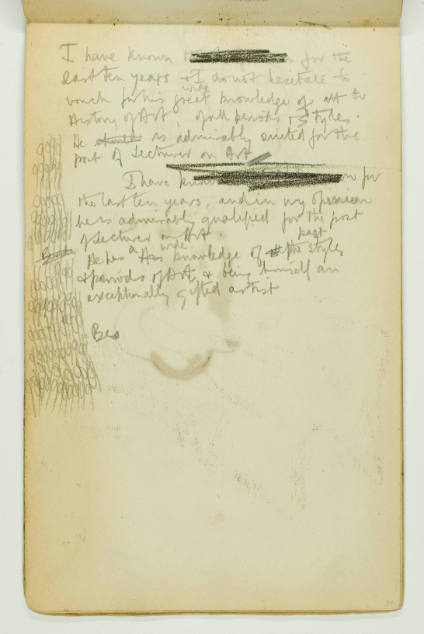 I have known for the
last ten years & I do not hesitate to
vouch for his great wide knowledge of Art &
History of Art, of all periods & styles.
He as admirably suited for the
post of Lecturer on Art
I have for
the last ten years, and in my opinion
he is admirably qualified for the post
of Lecturer on Art.
He has a wide knowledge of past styles
& periods of Art & being himself an
exceptionally gifted artist